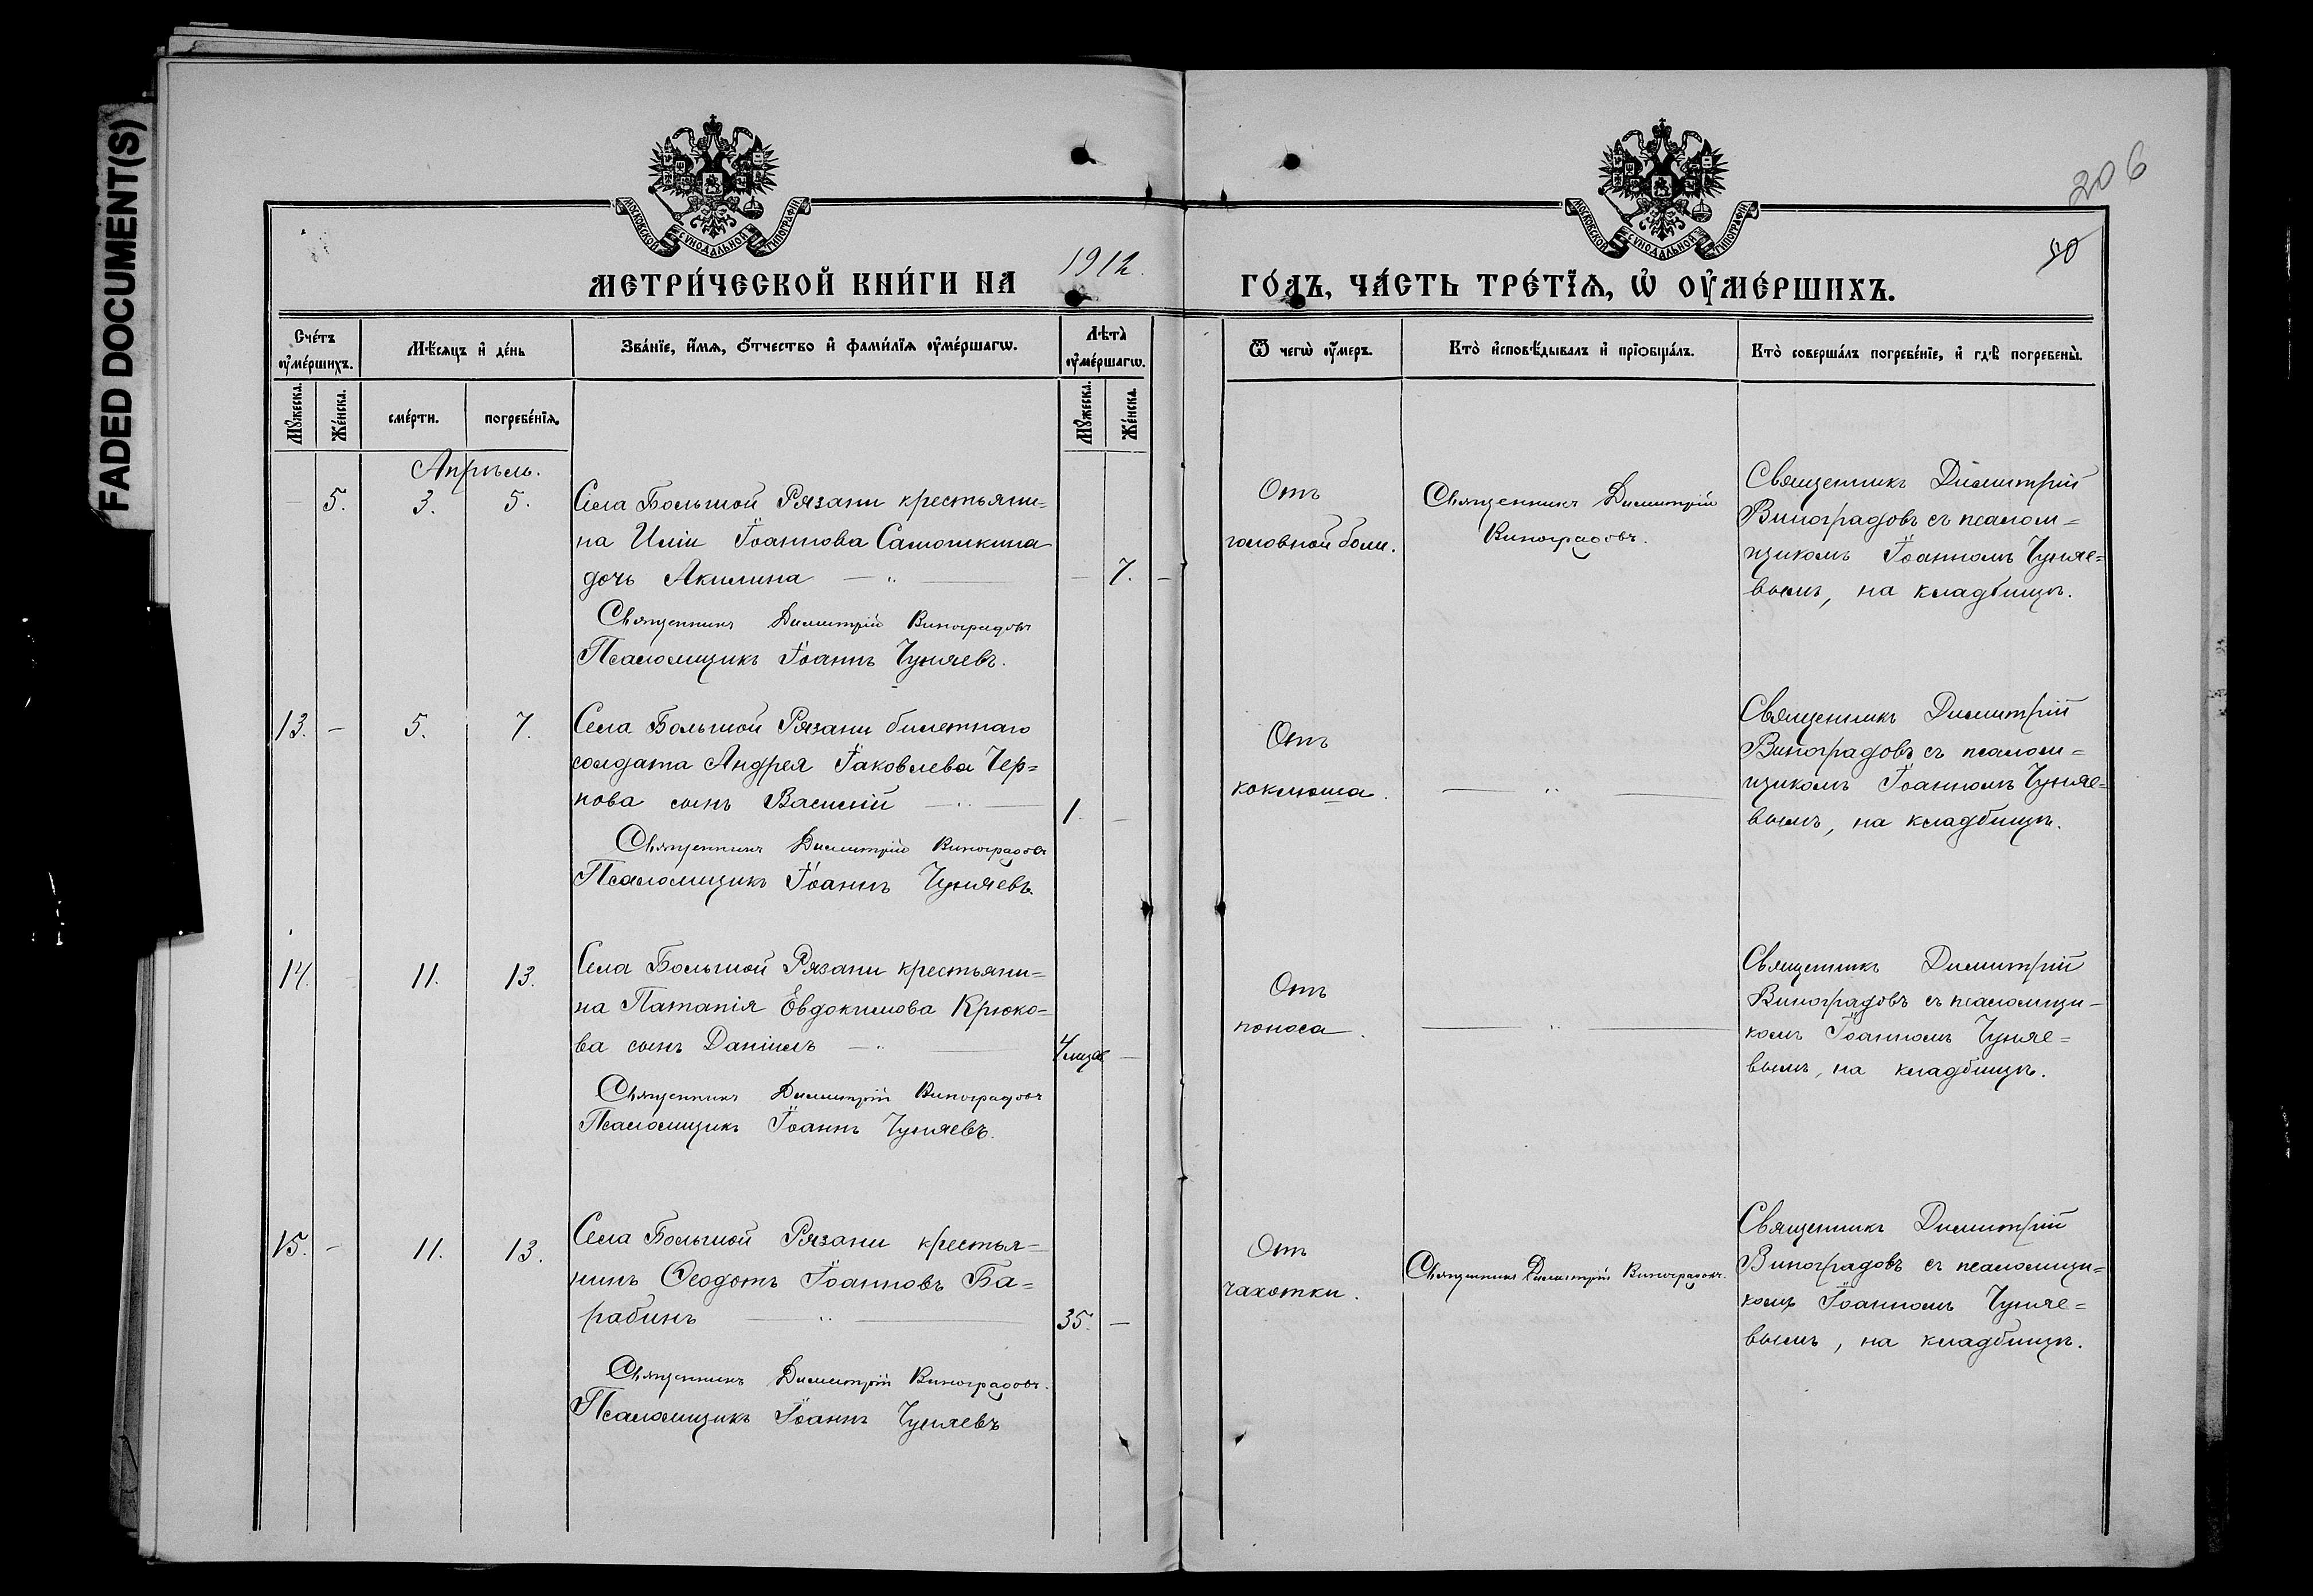 FADED DOCUMENT(S)
206
50
МОСКОВСКОЙ СѴНОДАЛЬНОЙ ТИПОГРАФІИ
МОСКОВСКОЙ СѴНОДАЛЬНОЙ ТИПОГРАФІИ
МЕТРИ́ЧЕСКОЙ КНИ́ГИ НА 1912. ГО́ДЪ, ЧА́СТЬ ТРЕ́ТЇѦ, Ѡ҆ ОУ҆МЕ́РШИХЪ.
Сче́тъ
оу҆ме́ршихъ.
Мꙋ́жеска.
Же́нска.
Мѣ́сяцъ и҆ де́нь
сме́рти.
погребе́нїѧ.
Зва́нїе, и҆́мѧ, ѻ҆́тчество и҆ фами́лїѧ оу҆ме́ршагѡ.
Лѣ́та̀
оу҆ме́ршагѡ.
Мꙋ́жеска.
Же́нска.
Ѿ чегѡ̀ оу҆́меръ.
Кто̀ и҆сповѣ́дывалъ и҆ прїѻбща́лъ.
Кто̀ соверша́лъ погребе́нїе, и҆ гдѣ̀ погребены̀.
Апрѣль.
— 5. 3. 5.
Села Большой Рязани крестьяни=
на Иліи Іоаннова Самошкина
дочь Акилина — „ —
— 7. —
Священникъ Димитрій Виноградовъ
Псаломщикъ Іоаннъ Чуняевъ.
Отъ
головной боли.
Священникъ Димитрій
Виноградовъ.
Священникъ Димитрій
Виноградовъ съ псалом=
щикомъ Іоанномъ Чуняе=
вымъ, на кладбищѣ.
13. — 5. 7.
Села Большой Рязани билетнаго
солдата Андрея Іаковлева Чер=
нова сынъ Василій — „ —
1. —
Священникъ Димитрій Виноградовъ
Псаломщикъ Іоаннъ Чуняевъ.
Отъ
коклюша.
— „ —
Священникъ Димитрій
Виноградовъ съ псалом=
щикомъ Іоанномъ Чуняе=
вымъ, на кладбищѣ.
14. — 11. 13.
Села Большой Рязани крестьяни=
на Патапія Евдокимова Крюко=
ва сынъ Даніилъ — „ —
—
Священникъ Димитрій Виноградовъ
Псаломщикъ Іоаннъ Чуняевъ.
Отъ
поноса.
— „ —
Священникъ Димитрій
Виноградовъ съ псаломщи=
комъ Іоанномъ Чуняе=
вымъ, на кладбищѣ.
15. — 11. 13.
Села Большой Рязани крестья=
нинъ Ѳеодотъ Іоанновъ Ба=
рабинъ — „ —
35. —
Священникъ Димитрій Виноградовъ.
Псаломщикъ Іоаннъ Чуняевъ
Отъ
чахотки.
Священникъ Димитрій Виноградовъ.
Священникъ Димитрій
Виноградовъ съ псаломщи=
комъ Іоанномъ Чуняе=
вымъ, на кладбищѣ.